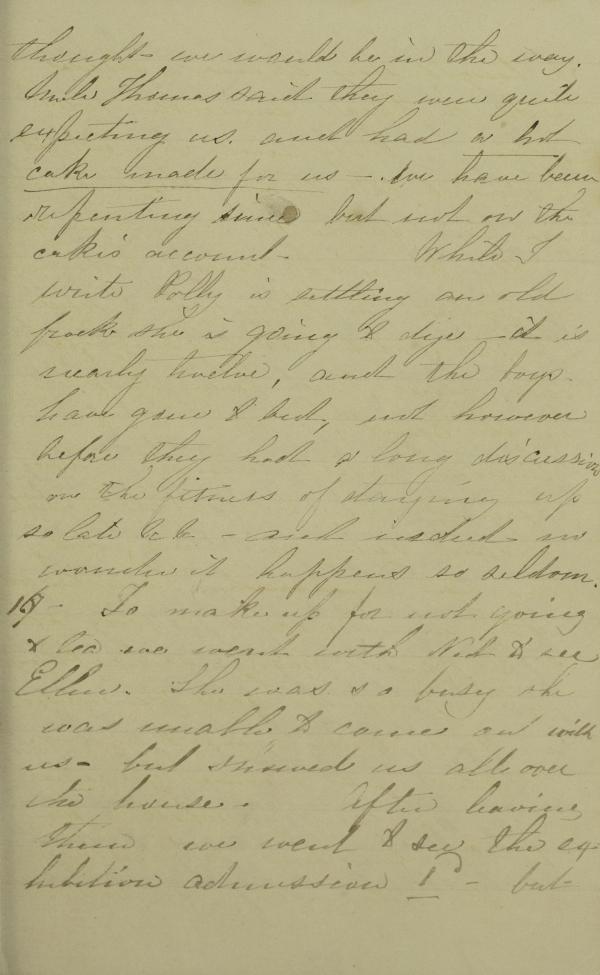 thought we would be in the way.
Uncle Thomas said they were quite
expecting us. and had a hot
cake made for us - . we have been
repenting since but not on the
cake's account - While I
write Polly is settling an old
frock she is going to dye - it is
nearly twelve, and the boys
have gone to bed, not however
before they had a long discussion
on the fitness of staying up
so late &c &c - and indeed no
wonder it happens so seldom.
- To make up for not going
to tea we went with Ned to see
Ellen. She was so busy she
was unable to come out with
us - but showed us all over
the house. After leaving
them we went to see the ex-
hibition admission 1d - but